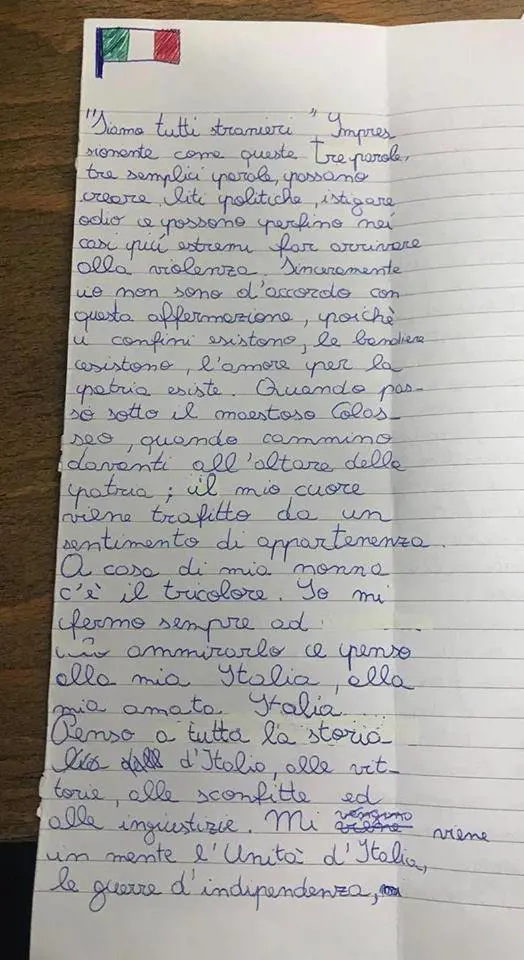 "Siamo tutti stranieri" Impres
sionante come queste tre parole,
tre semplici parole, possano
creare liti politiche, istigare
odio e possono perfino nei
casi più estremi far arrivare
alla violenza. Sinceramente
io non sono d'accordo con
questa affermazione, poichè
i confini esistono, le bandiere
esistono, l'amore per la
patria esiste. Quando pas-
so sotto il maestoso Colos-
seo, quando cammino
davanti all'altare della
patria; il mio cuore
viene trafitto da un
sentimento di appartenenza.
A casa di mia nonna
c'è il tricolore. Io mi
fermo sempre ad
ammirarlo e penso
alla mia Italia, alla
mia amata Italia.
Penso a tutta la storia
d'Italia, alle vit-
torie, alle sconfitte ed
alle ingiustizie. Mi vengono viene viene
in mente l'Unità d'Italia,
le guerre d'indipendenza,